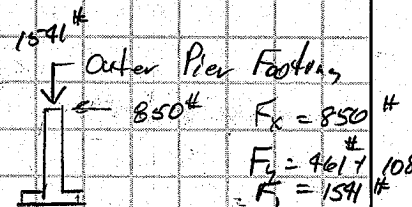 1541#
Outer Pier Footing
850#
Fx = 850 #
Fy = 461 + 108
= 1541 #